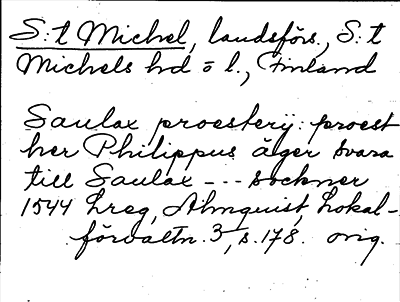 S:t Michel, landsförs., S:t
Michels hd o l., Finland
Saulax proesterij: proest
her Philippus äger svara
till Saulax --- sockner
1544 Lreg, Almquist, Lokal-
förvaltn. 3, s. 178. orig.